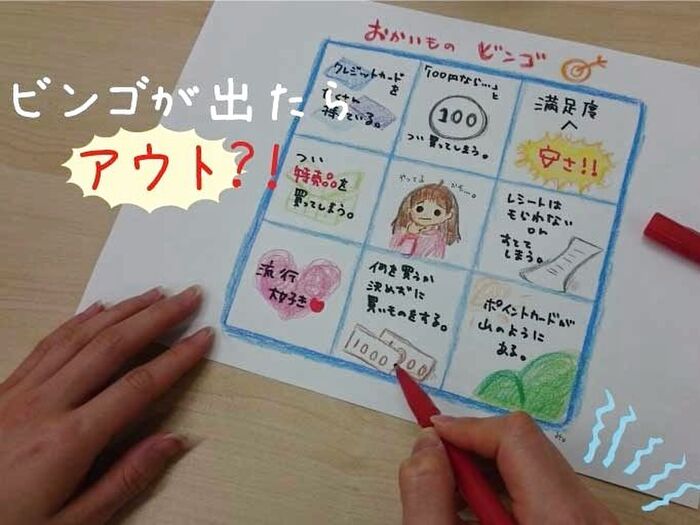 おかいもの ビンゴ
ビンゴが出たら
アウト?!
クレジットカード
を
たくさん
持っている。
「100円なら…」と
100
つい買ってしまう。
満足度
へ
安さ!!
つい
特売品を
買ってしまう。
やってる
レシートは
もらわない
or
すてて
しまう。
流行
大好き
何を買うか
決めずに
買いものをする。
1000
ポイントカードが
山のように
ある。